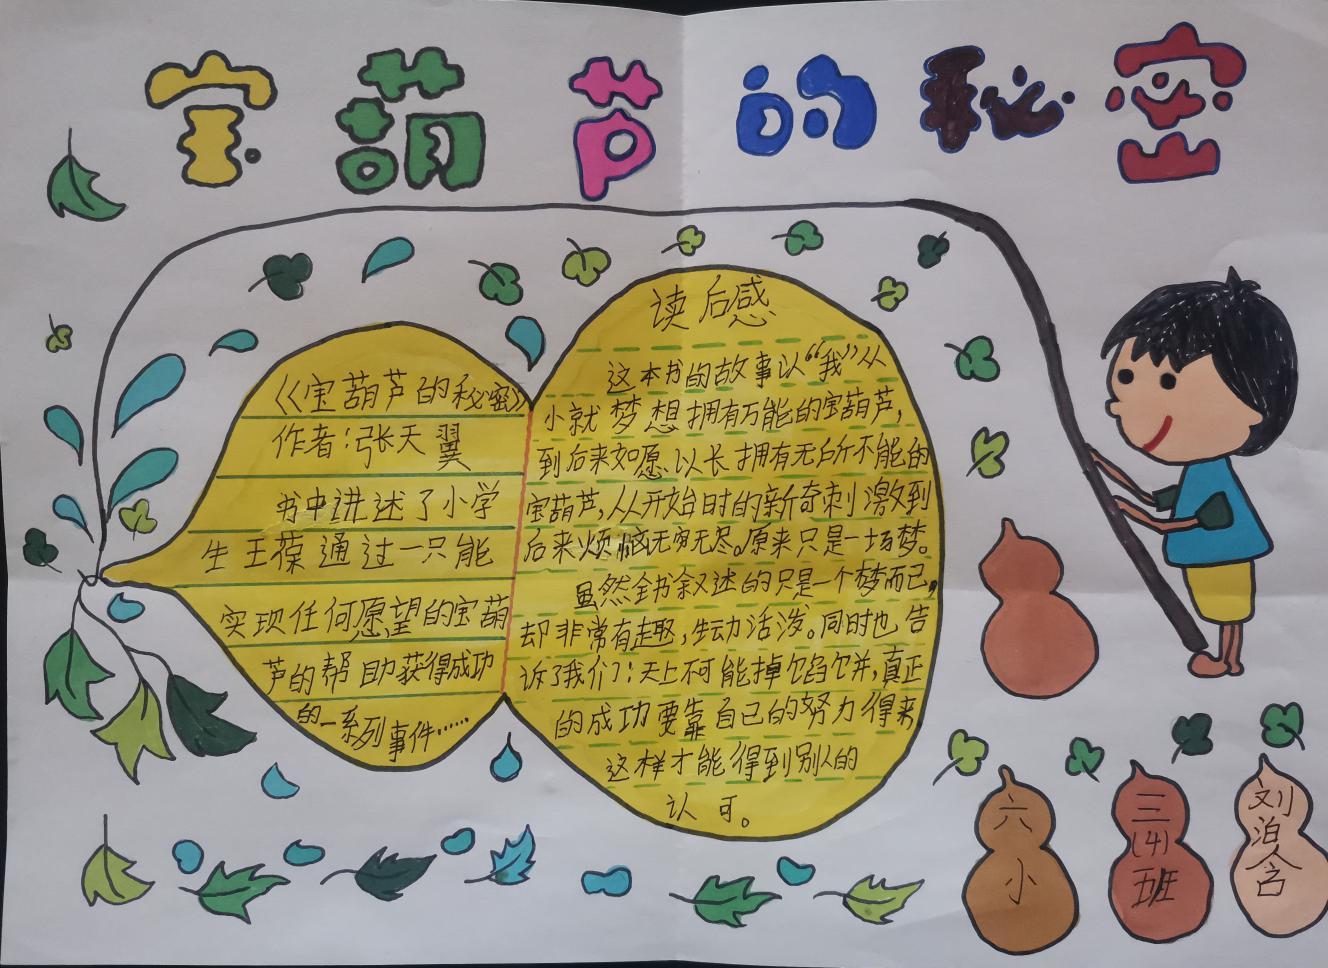 宝葫芦的秘密
《宝葫芦的秘密》
作者:张天翼
书中讲述了小学
生王葆通过一只能
实现任何愿望的宝葫
芦的帮助获得成功
的一系列事件……
读后感
这本书的故事以“我”从
小就梦想拥有万能的宝葫芦,
到后来如愿以长拥有无所不能的
宝葫芦,从开始时的新奇刺激到
后来烦恼无穷无尽。原来只是一场梦。
虽然全书叙述的只是一个梦而已,
却非常有趣,生动活泼。同时也告
诉了我们:天上不可能掉馅饼,真正
的成功要靠自己的努力得来
这样才能得到别人的
认可。
六小
三(4)班
刘
含